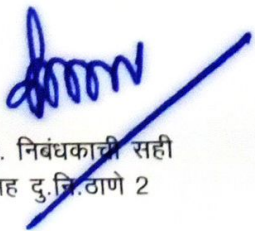 . निबंधकाची सही
ह दु.नि.ठाणे 2